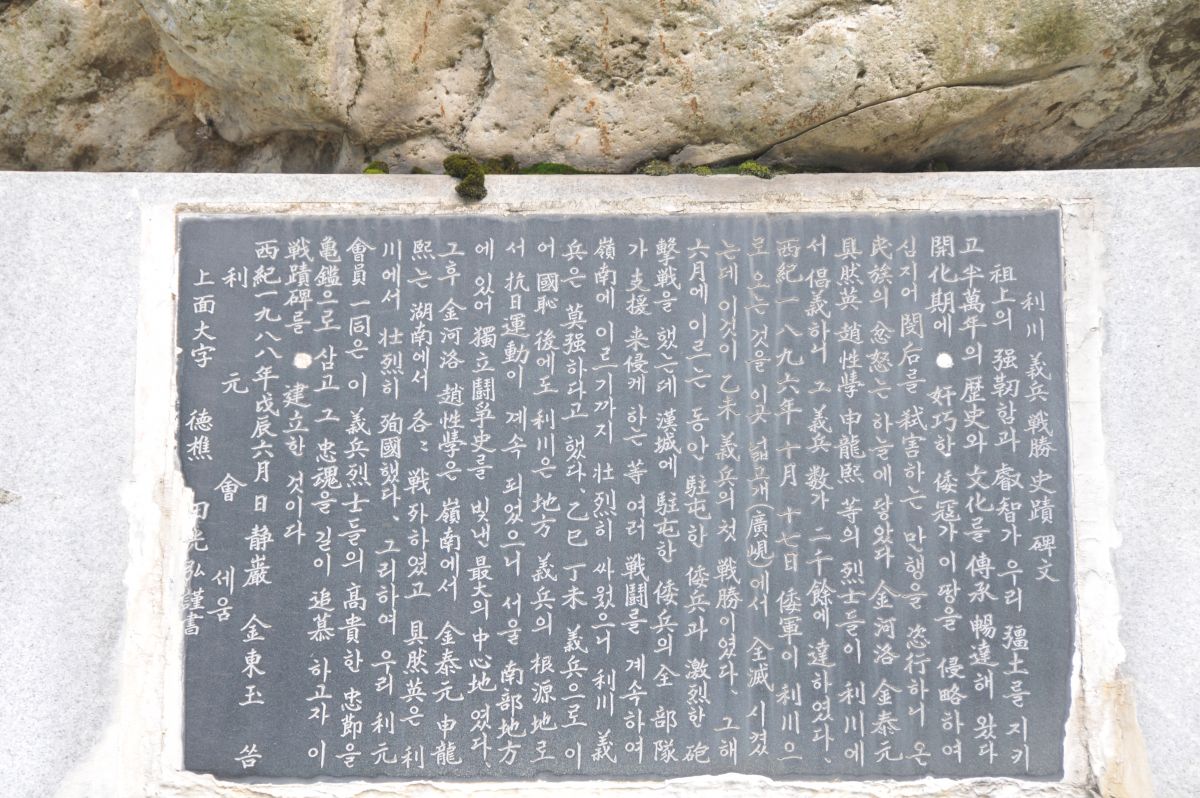 利川 義兵 戰勝 史蹟 碑文
祖上의 强靭함과 睿智가 우리 疆土를 지키
고 半萬年의 歷史와 文化를 傳承 暢達해 왔다
開化期에 奸巧한 倭寇가 이 땅을 侵略하여
심지어 閔后를 弑害하는 만행을 恣行하니 온
民族의 忿怒는 하늘에 닿았다 金河洛 金泰元
具然英 趙性學 申龍熙 等의 烈士들이 利川에
서 倡義하니 그 義兵 数가 二千餘에 達하였다.
西紀一八九六年 十月 十七日 倭軍이 利川으
로 오는 것을 이곳 넓고개(廣峴)에서 全滅 시켰
는데 이것이 乙未 義兵의 첫 戦勝이였다. 그해
六月에 이르는 동안 駐屯한 倭兵과 激烈한 砲
擊戦을 했는데 漢城에 駐屯한 倭兵의 全 部隊
가 支援 来侵케 하는 等 여러 戦鬪를 계속하여
嶺南에 이르기까지 壮烈히 싸웠으니 利川 義
兵은 莫强하다고 했다. 乙巳 丁未 義兵으로 이
어 國恥 後에도 利川은 地方 義兵의 根源地로
서 抗日運動이 계속 되었으니 서울 南部地方
에 있어 獨立鬪争史를 빛낸 最大의 中心地 였다.
그후 金河洛 趙性學은 嶺南에서 金泰元 申龍
熙는 湖南에서 各々 戦死하였고 具然英은 利
川에서 壮烈히 殉國했다. 그리하여 우리 利元
會員 一同은 이 義兵烈士들의 髙貴한 忠節을
龜鑑으로 삼고 그 忠魂을 길이 追慕 하고자 이
戦蹟碑를 建立한 것이다
西紀一九八八年戊辰六月 日 静巖 金東玉 쯤
利 元 會 세움
上面大字 德樵 田光弘謹書